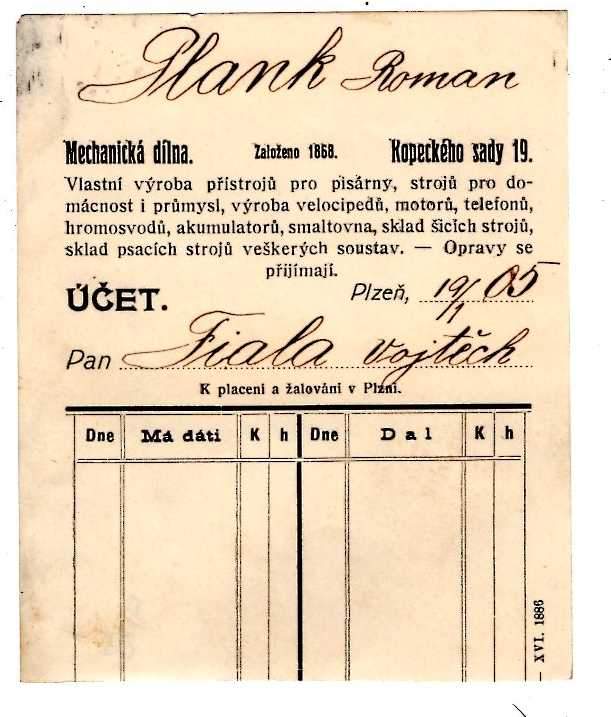 Plank Roman
Mechanická dílna. Založeno 1868. Kopeckého sady 19.
Vlastní výroba přístrojů pro pisárny, strojů pro do-
mácnost i průmysl, výroba velocipedů, motorů, telefonů,
hromosvodů, akumulatorů, smaltovna, sklad šicích strojů,
sklad psacích strojů veškerých soustav. — Opravy se
přijímají.
ÚČET. Plzeň, 19/1 05
Pan Fiala Vojtěch
K placení a žalování v Plzni.
Dne Má dáti K h Dne Dal K h
— XVI. 1886